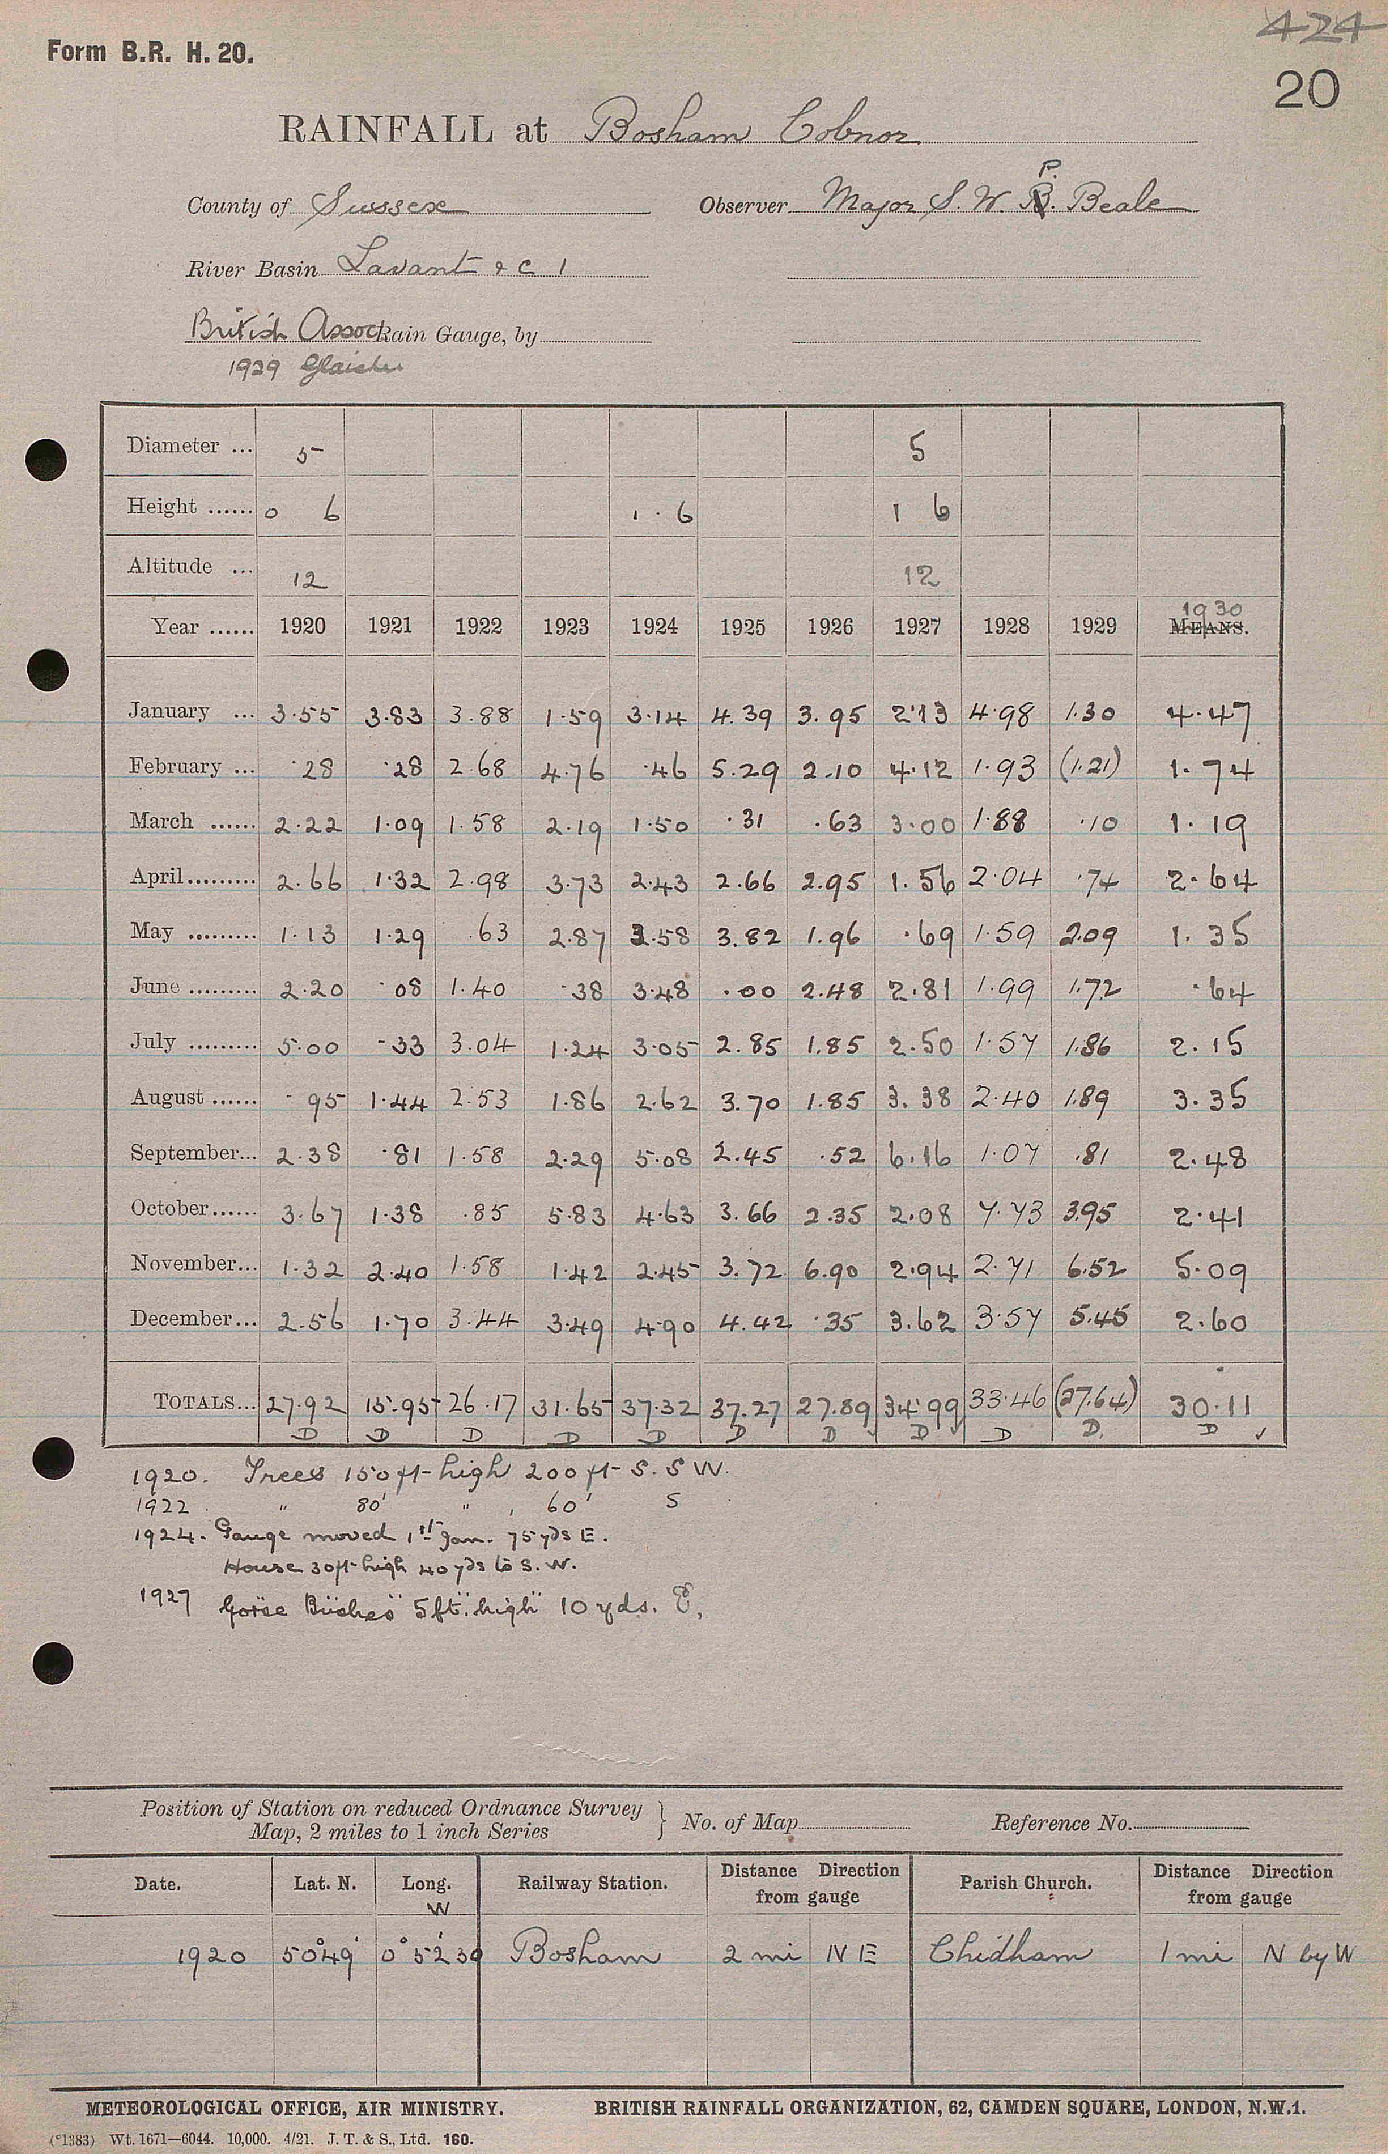 424
Form B.R. H. 20.
20
RAINFALL at Bosham Cobnor
P.
County of Sussex Observer Major S. W. B. Beale
River Basin Lavant &c 1
British Assoc Rain Gauge, by
1929 Glaisher
Diameter ... 5 5
Height ...... 0 6 1 · 6 1 6
Altitude ... 12 12
1930
Year ...... 1920 1921 1922 1923 1924 1925 1926 1927 1928 1929 MEANS.
January ... 3.55 3.83 3.88 1.59 3.14 4.39 3.95 2.13 4.98 1.30 4.47
February ... .28 .28 2.68 4.76 .46 5.29 2.10 4.12 1.93 (1.21) 1.74
March ...... 2.22 1.09 1.58 2.19 1.50 .31 .63 3.00 1.88 .10 1.19
April......... 2.66 1.32 2.98 3.73 2.43 2.66 2.95 1.56 2.04 .74 2.64
May ......... 1.13 1.29 .63 2.87 3.58 3.82 1.96 .69 1.59 2.09 1.35
June ......... 2.20 .08 1.40 .38 3.48 .00 2.48 2.81 1.99 1.72 .64
July ......... 5.00 .33 3.04 1.24 3.05 2.85 1.85 2.50 1.57 1.86 2.15
August ...... .95 1.44 2.53 1.86 2.62 3.70 1.85 3.38 2.40 1.89 3.35
September... 2.38 .81 1.58 2.29 5.08 2.45 .52 6.16 1.07 .81 2.48
October...... 3.67 1.38 .85 5.83 4.63 3.66 2.35 2.08 7.73 3.95 2.41
November... 1.32 2.40 1.58 1.42 2.45 3.72 6.90 2.94 2.71 6.52 5.09
December... 2.56 1.70 3.44 3.49 4.90 4.42 .35 3.62 3.57 5.45 2.60
TOTALS... 27.92 15.95 26.17 31.65 37.32 37.27 27.89 34.99 33.46 (27.64) 30.11
D D D D D D D ✓ D D D. D ✓
1920. Trees 150 ft high 200 ft S. S W.
1922 " 80' " , 60' S
1924. Gauge moved 1st Jan. 75 yds E.
House 30 ft high 40 yds to S. W.
1927 Gorse Bushes 5 ft. high 10 yds. E.
Position of Station on reduced Ordnance Survey
Map, 2 miles to 1 inch Series } No. of Map Reference No.
Date. Lat. N. Long. W Railway Station. Distance Direction from gauge Parish Church. Distance Direction from gauge
1920 50°49' 0°52'30 Bosham 2 mi NE Chidham 1 mi N by W
METEOROLOGICAL OFFICE, AIR MINISTRY. BRITISH RAINFALL ORGANIZATION, 62, CAMDEN SQUARE, LONDON, N.W.1.
(*1383) Wt. 1671—6044. 10,000. 4/21. J. T. & S., Ltd. 160.